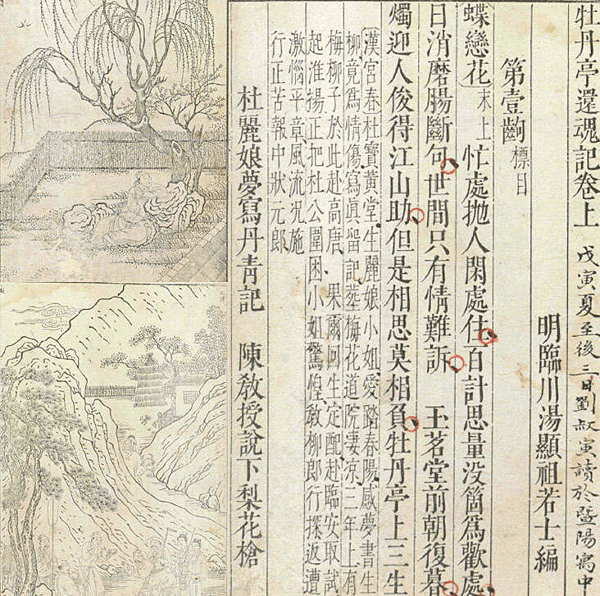 牡丹亭還魂記卷上 戊寅夏至後三日劉叔寅讀於暨陽寓中
明臨川湯顯祖若士編
第壹齣 標目
蝶戀花 末上 忙處抛人閑處住百計思量没箇爲歡處
日消磨腸斷句世間只有情難訴 玉茗堂前朝復暮
燭迎人俊得江山助但是相思莫相負牡丹亭上三生
漢宮春杜寶黃堂生麗娘小姐愛踏春陽感夢書生
柳竟爲情傷寫眞留記葬梅花道院淒涼三年上有
梅柳子於此赴高唐 果爾回生定配赴臨安取試
起淮揚正把杜公圍困小姐驚惶敎柳郎行探返遭
激惱平章風流况施
行正苦報中狀元郎
杜麗娘夢寫丹青記 陳敎授說下梨花槍